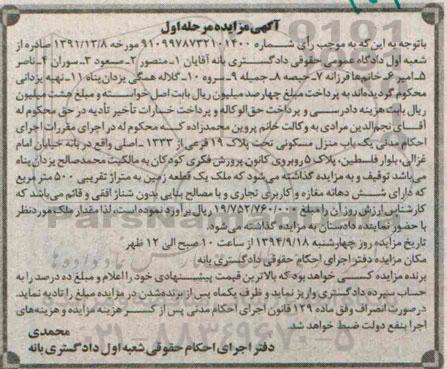 آگهی مزایده مرحله اول
باتوجه به این که به موجب رأی شماره ۹۱۰۹۹۷۸۷۳۲۱۰۱۴۰۰ مورخه ۱۳۹۱/۱۲/۸ صادره از
شعبه اول دادگاه عمومی حقوقی دادگستری بانه آقایان ۱ـ منصور ۲ـ مسعود ۳ـ سوران ۴ـ ناصر
۵ـ امیر ۶ـ خانم‌ها فرزانه ۷ـ حبصه ۸ـ جمیله ۹ـ سروه ۱۰ـ گلاله همگی یزدان پناه ۱۱ـ تهیه یزدانی
محکوم گردیده‌اند به پرداخت مبلغ چهارصد میلیون ریال بابت اصل خواسته و مبلغ هشت میلیون
ریال بابت هزینه دادرسی و پرداخت حق‌الوکاله و پرداخت خسارات تأخیر تأدیه در حق محکوم له
آقای نجم‌الدین مرادی به وکالت خانم پروین محمدزاده که محکوم له در اجرای مقررات اجرای
احکام مدنی یک باب منزل مسکونی تحت پلاک ۱۹ فرعی از ۱۳۳۳ـ اصلی واقع در بانه خیابان امام
غزالی، بلوار فلسطین، پلاک ۵ روبروی کانون پرورش فکری کودکان به مالکیت محمدصالح یزدان پناه
می‌باشد توقیف و به مزایده گذاشته می‌شود که ملک یک قطعه زمین به متراژ تقریبی ۵۰۰ متر مربع
که دارای شش دهانه مغازه و کاربری تجاری و با مصالح بنایی بدون شناژ افقی و قائم می‌باشد که
کارشناس ارزش روز آن را مبلغ ۱۹/۷۵۲/۷۶۰/۰۰۰ ریال برآورد نموده است، لذا مقدار ملک موردنظر
با حضور نماینده دادستان به مزایده گذاشته می‌شود.
تاریخ مزایده روز چهارشنبه ۱۳۹۴/۹/۱۸ از ساعت ۱۰ صبح الی ۱۲ ظهر
مکان مزایده دفتر اجرای احکام حقوقی دادگستری بانه
برنده مزایده کسی خواهد بود که بالاترین قیمت پیشنهادی خود را اعلام و مبلغ ده درصد را به
حساب سپرده دادگستری واریز نماید و ظرف یکماه پس از برنده‌شدن در مزایده مبلغ را تادیه نماید.
در صورت انصراف وفق ماده ۱۲۹ قانون اجرای احکام مدنی پس از کسر هزینه مزایده و هزینه‌های
اجرا بنفع دولت ضبط خواهد شد.
محمدی
دفتر اجرای احکام حقوقی شعبه اول دادگستری بانه